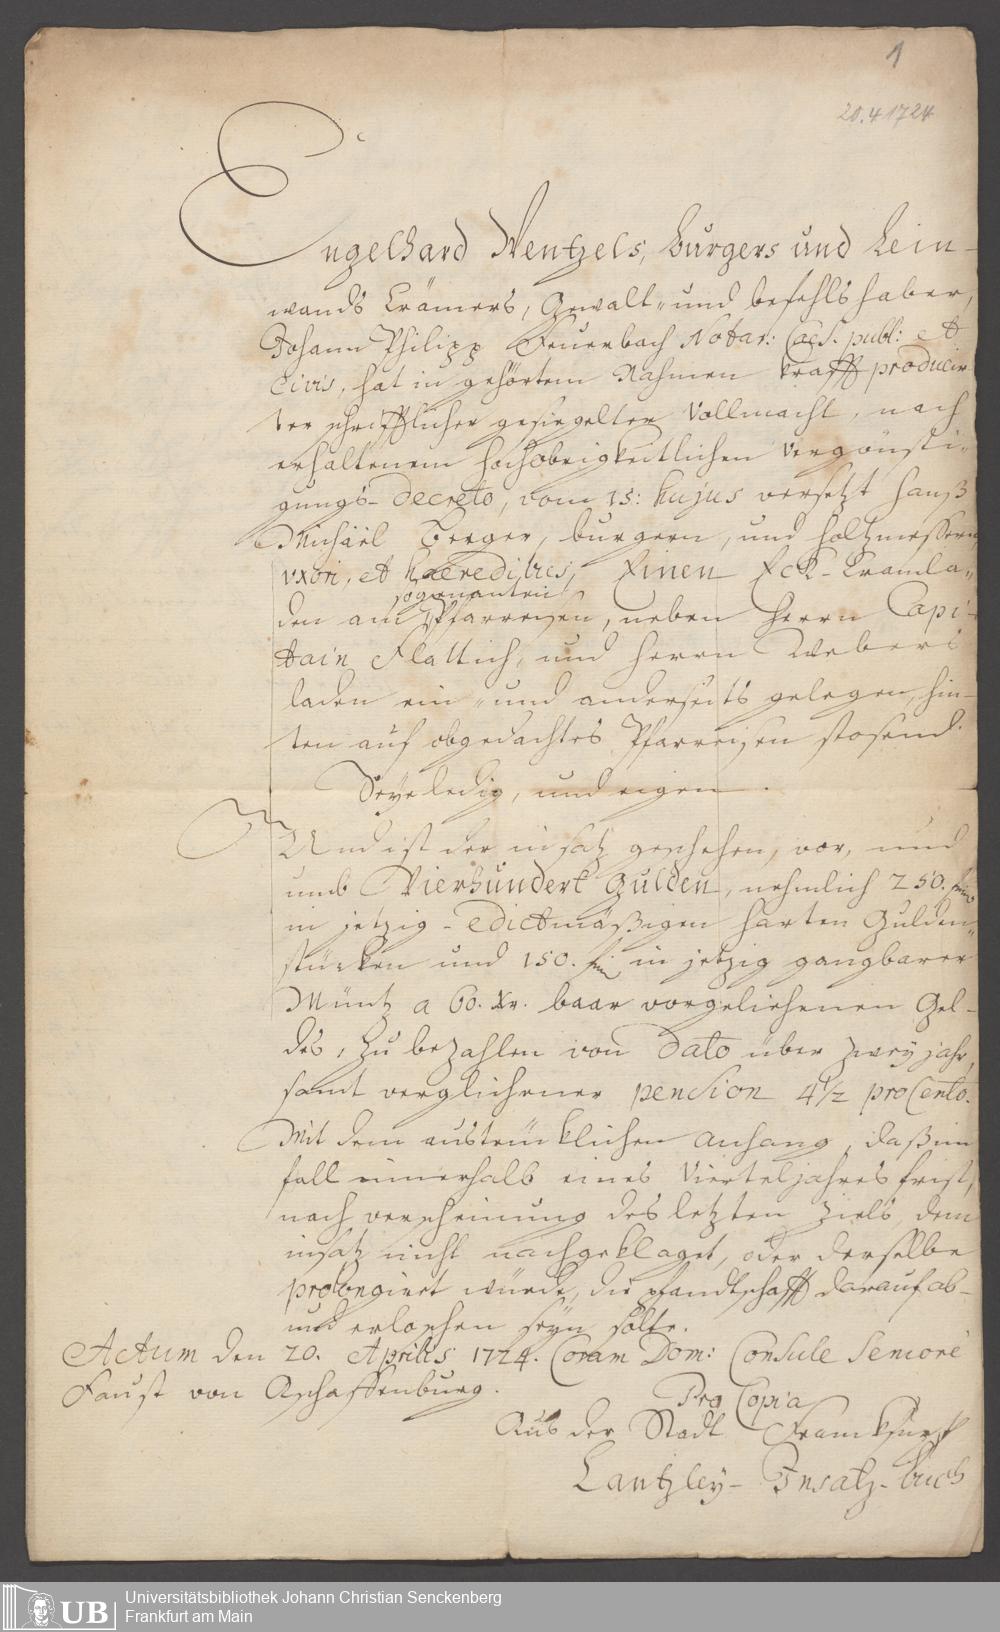 1
20.4 1724
Engelhard Wentzels, burgers und Lein-
wands Crämers, Gewalt- und befehlshaber,
Johann Philipp Feuerbach Notar: Caes. publ: et
Civis, hat in gehörtem Nahmen krafft producir
ter schrifftlicher gesiegelter Vollmacht, nach
erhaltenem hochobrigkeitlichen Vergönsti-
gungs-Decreto, vom 15: hujus versetzt Hanß
Michäel Berger, burgern, und holtzmessern
uxori, et haeredibus, Einen Eck-Cramla-
sogenanten
den am Pfarreisen, neben Herrn Capi-
tain Flattich, und Herrn Webers
laden ein- und anderseits gelegen, hin-
ten auf obgedachtes Pfarreisen stosend.
Seye ledig, und eigen.
Und ist der insatz geschehen, vor, und
umb Vierhundert Gulden, nehmlich 250.
in jetzig-edictmäßigen harten Gulden-
stücken und 150. in jetzig gangbarer
Müntz a 60. Xr. baar vorgeliehenen Gel-
des, zu bezahlen von Dato über zwey jahr,
samt verglichener pension 4½ pro Cento.
Mit dem austrücklichen anhang, daß im
fall innerhalb eines Vierteljahres frist,
nach verscheinung des letzten Ziels, dem
insatz nicht nachgeklaget, oder derselbe
prolongiret würde, die pfandtschafft darauf ab-
und erloschen seyn solte.
Actum den 20. Aprilis 1724. Coram Dom: Consule Seniore
Faust von Aschaffenburg.
Pro Copia
Aus der Stadt Franckfurt
Cantzley-Insatz-buch
UB
Universitätsbibliothek Johann Christian Senckenberg
Frankfurt am Main